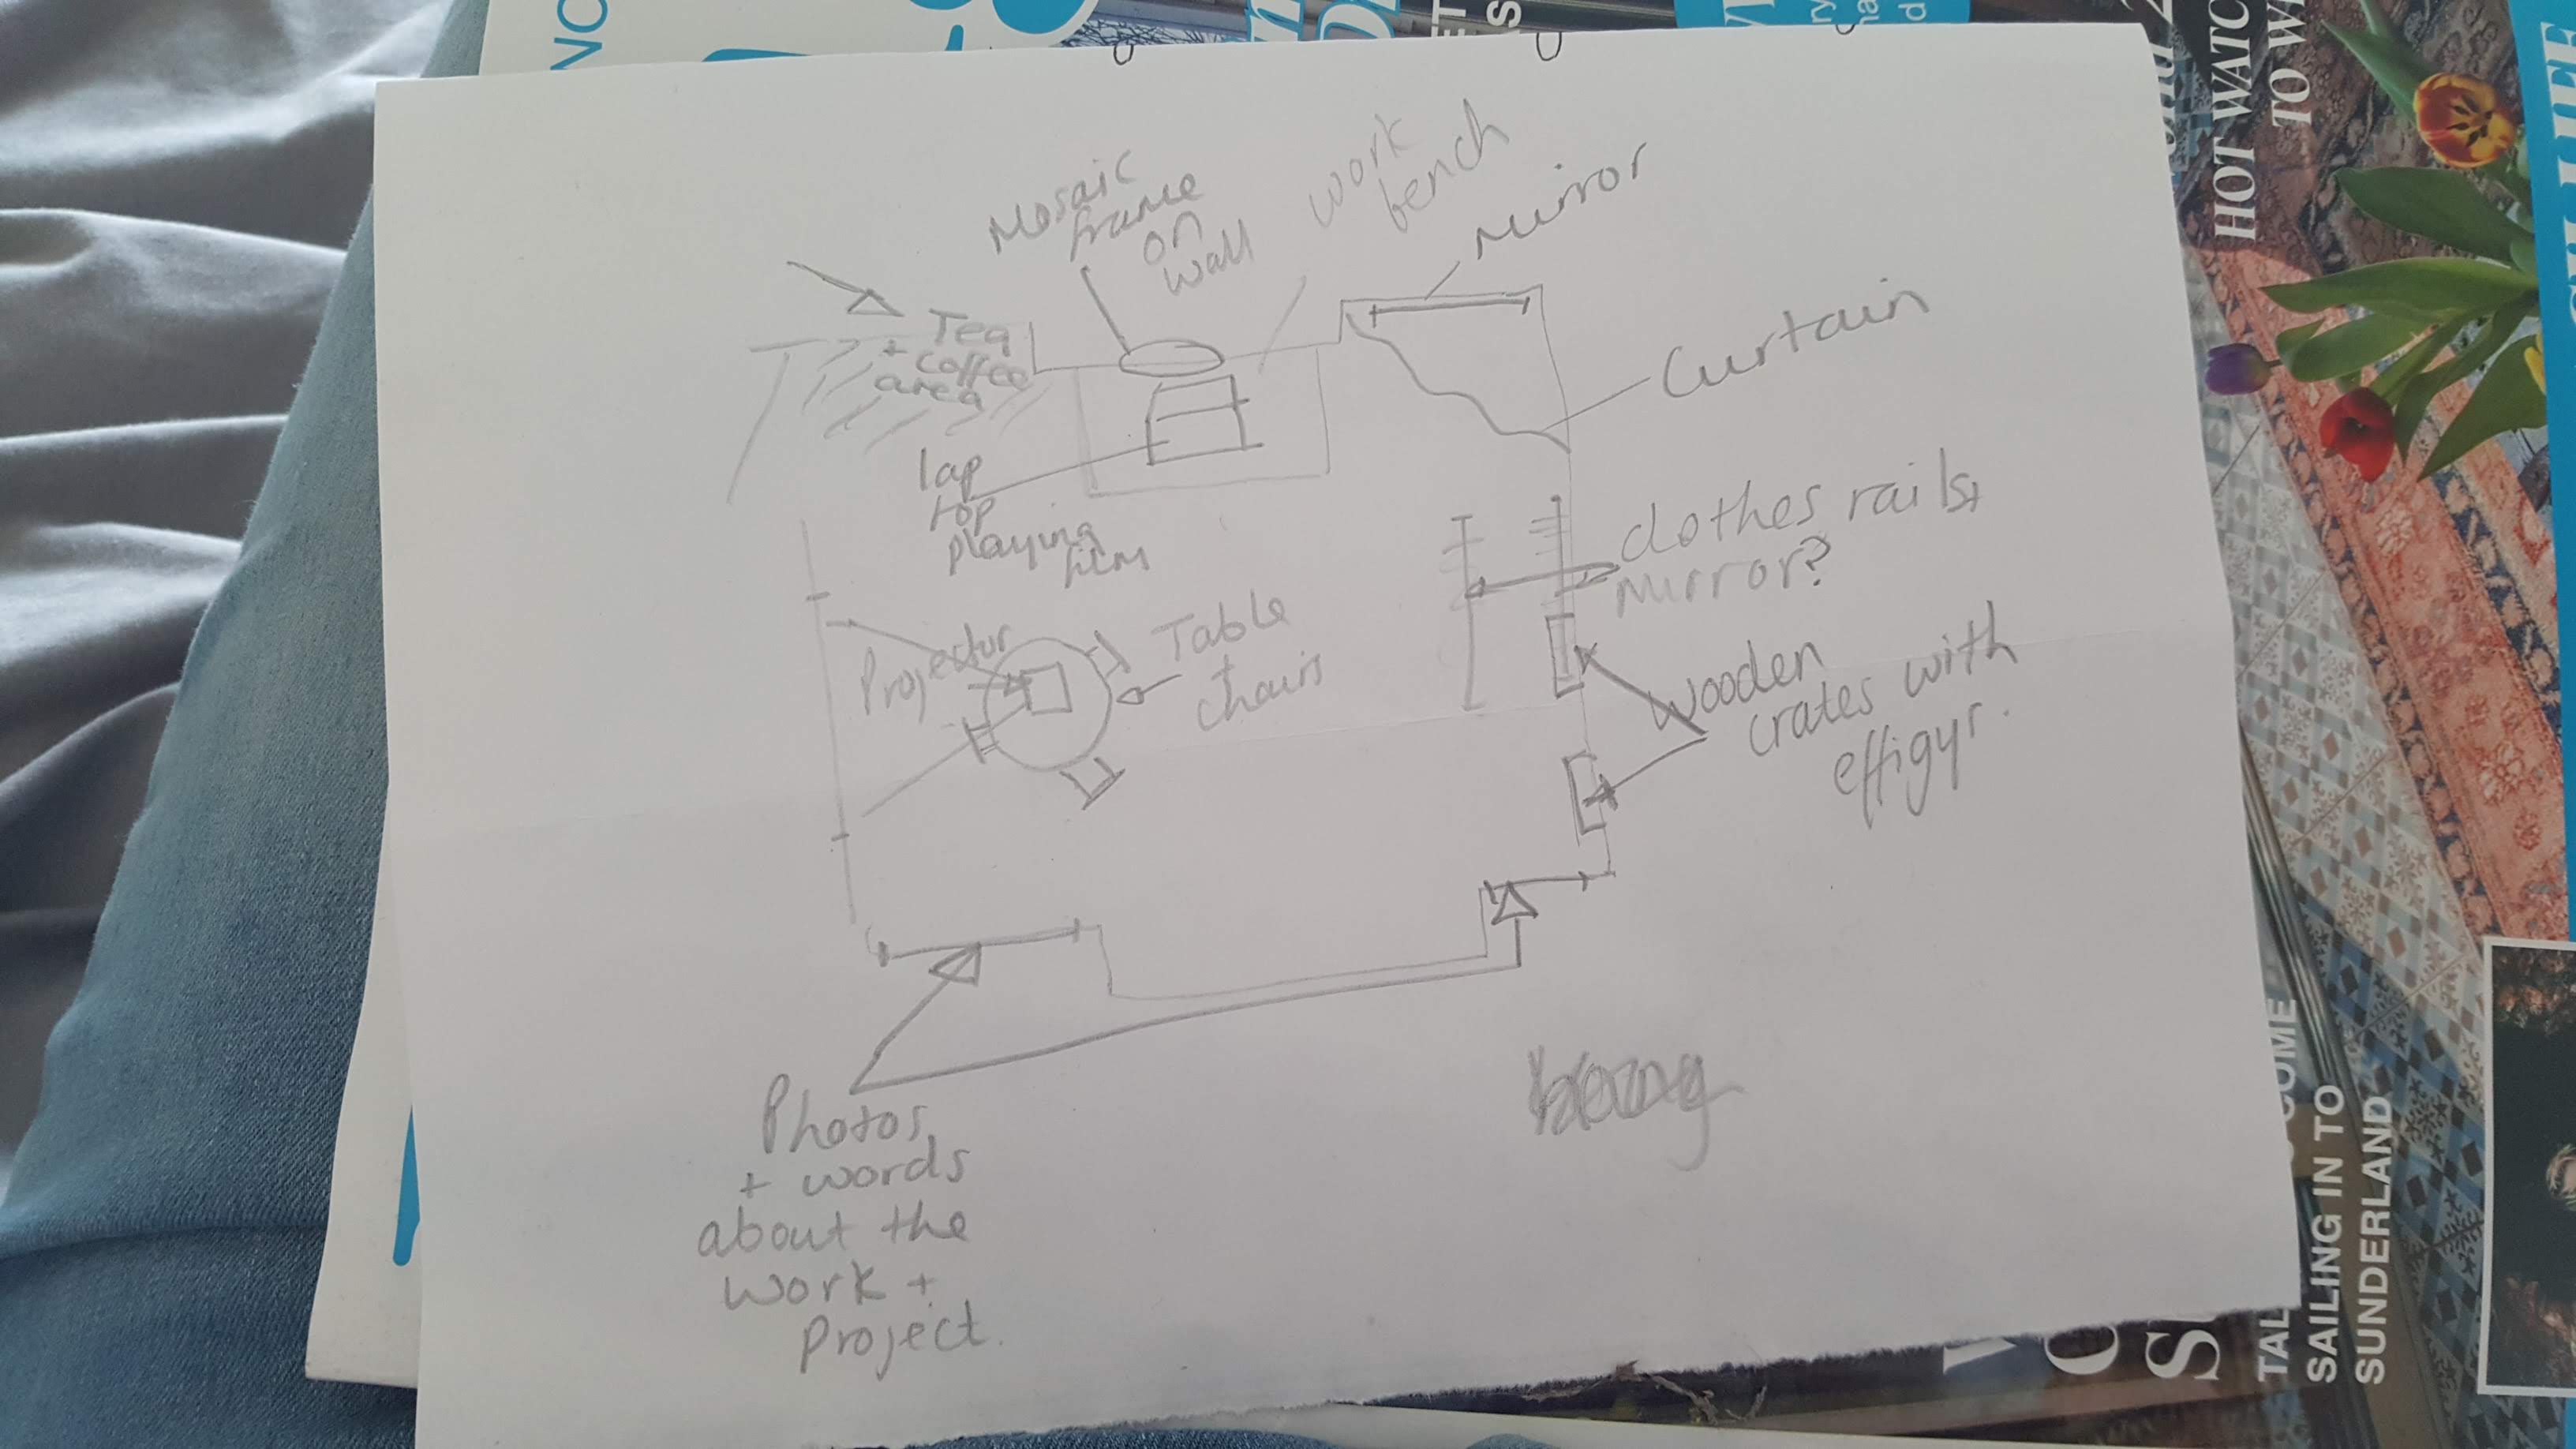 Mosaic
frame
on
wall
work
bench
Mirror
Tea
+ coffee
area
Curtain
lap
top
playing
film
clothes rails,
Mirror?
Projector
Table
chairs
wooden
crates with
effigys.
Photos
+ words
about the
work +
project.
HOT WATC
TO W
SAILING IN TO
SUNDERLAND